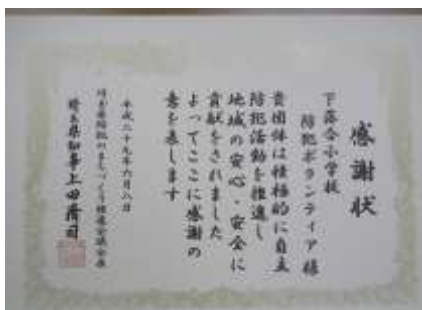 感謝状
下落合小学校
防犯ボランティア様
貴団体は積極的に自主
防犯活動を推進し
地域の安心・安全に
貢献をされました
よってここに感謝の
意を表します
平成二十九年六月八日
埼玉県防犯のまちづくり推進会議会長
埼玉県知事上田清司